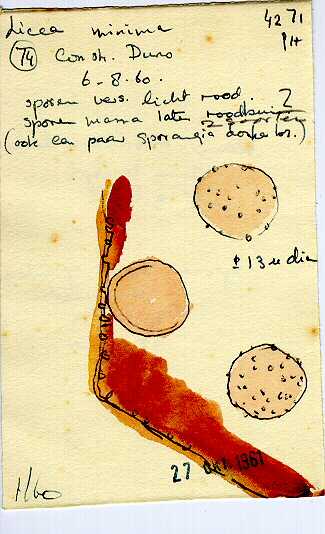 Licea minima
4271
PH
T4 Consh. Duno
6-8-60.
sporen vers. licht rood
sporen massa later roodbruin
2 soorten
(ook een paar sporangia donker br.)
± 13 u dia
27 1961
1/60